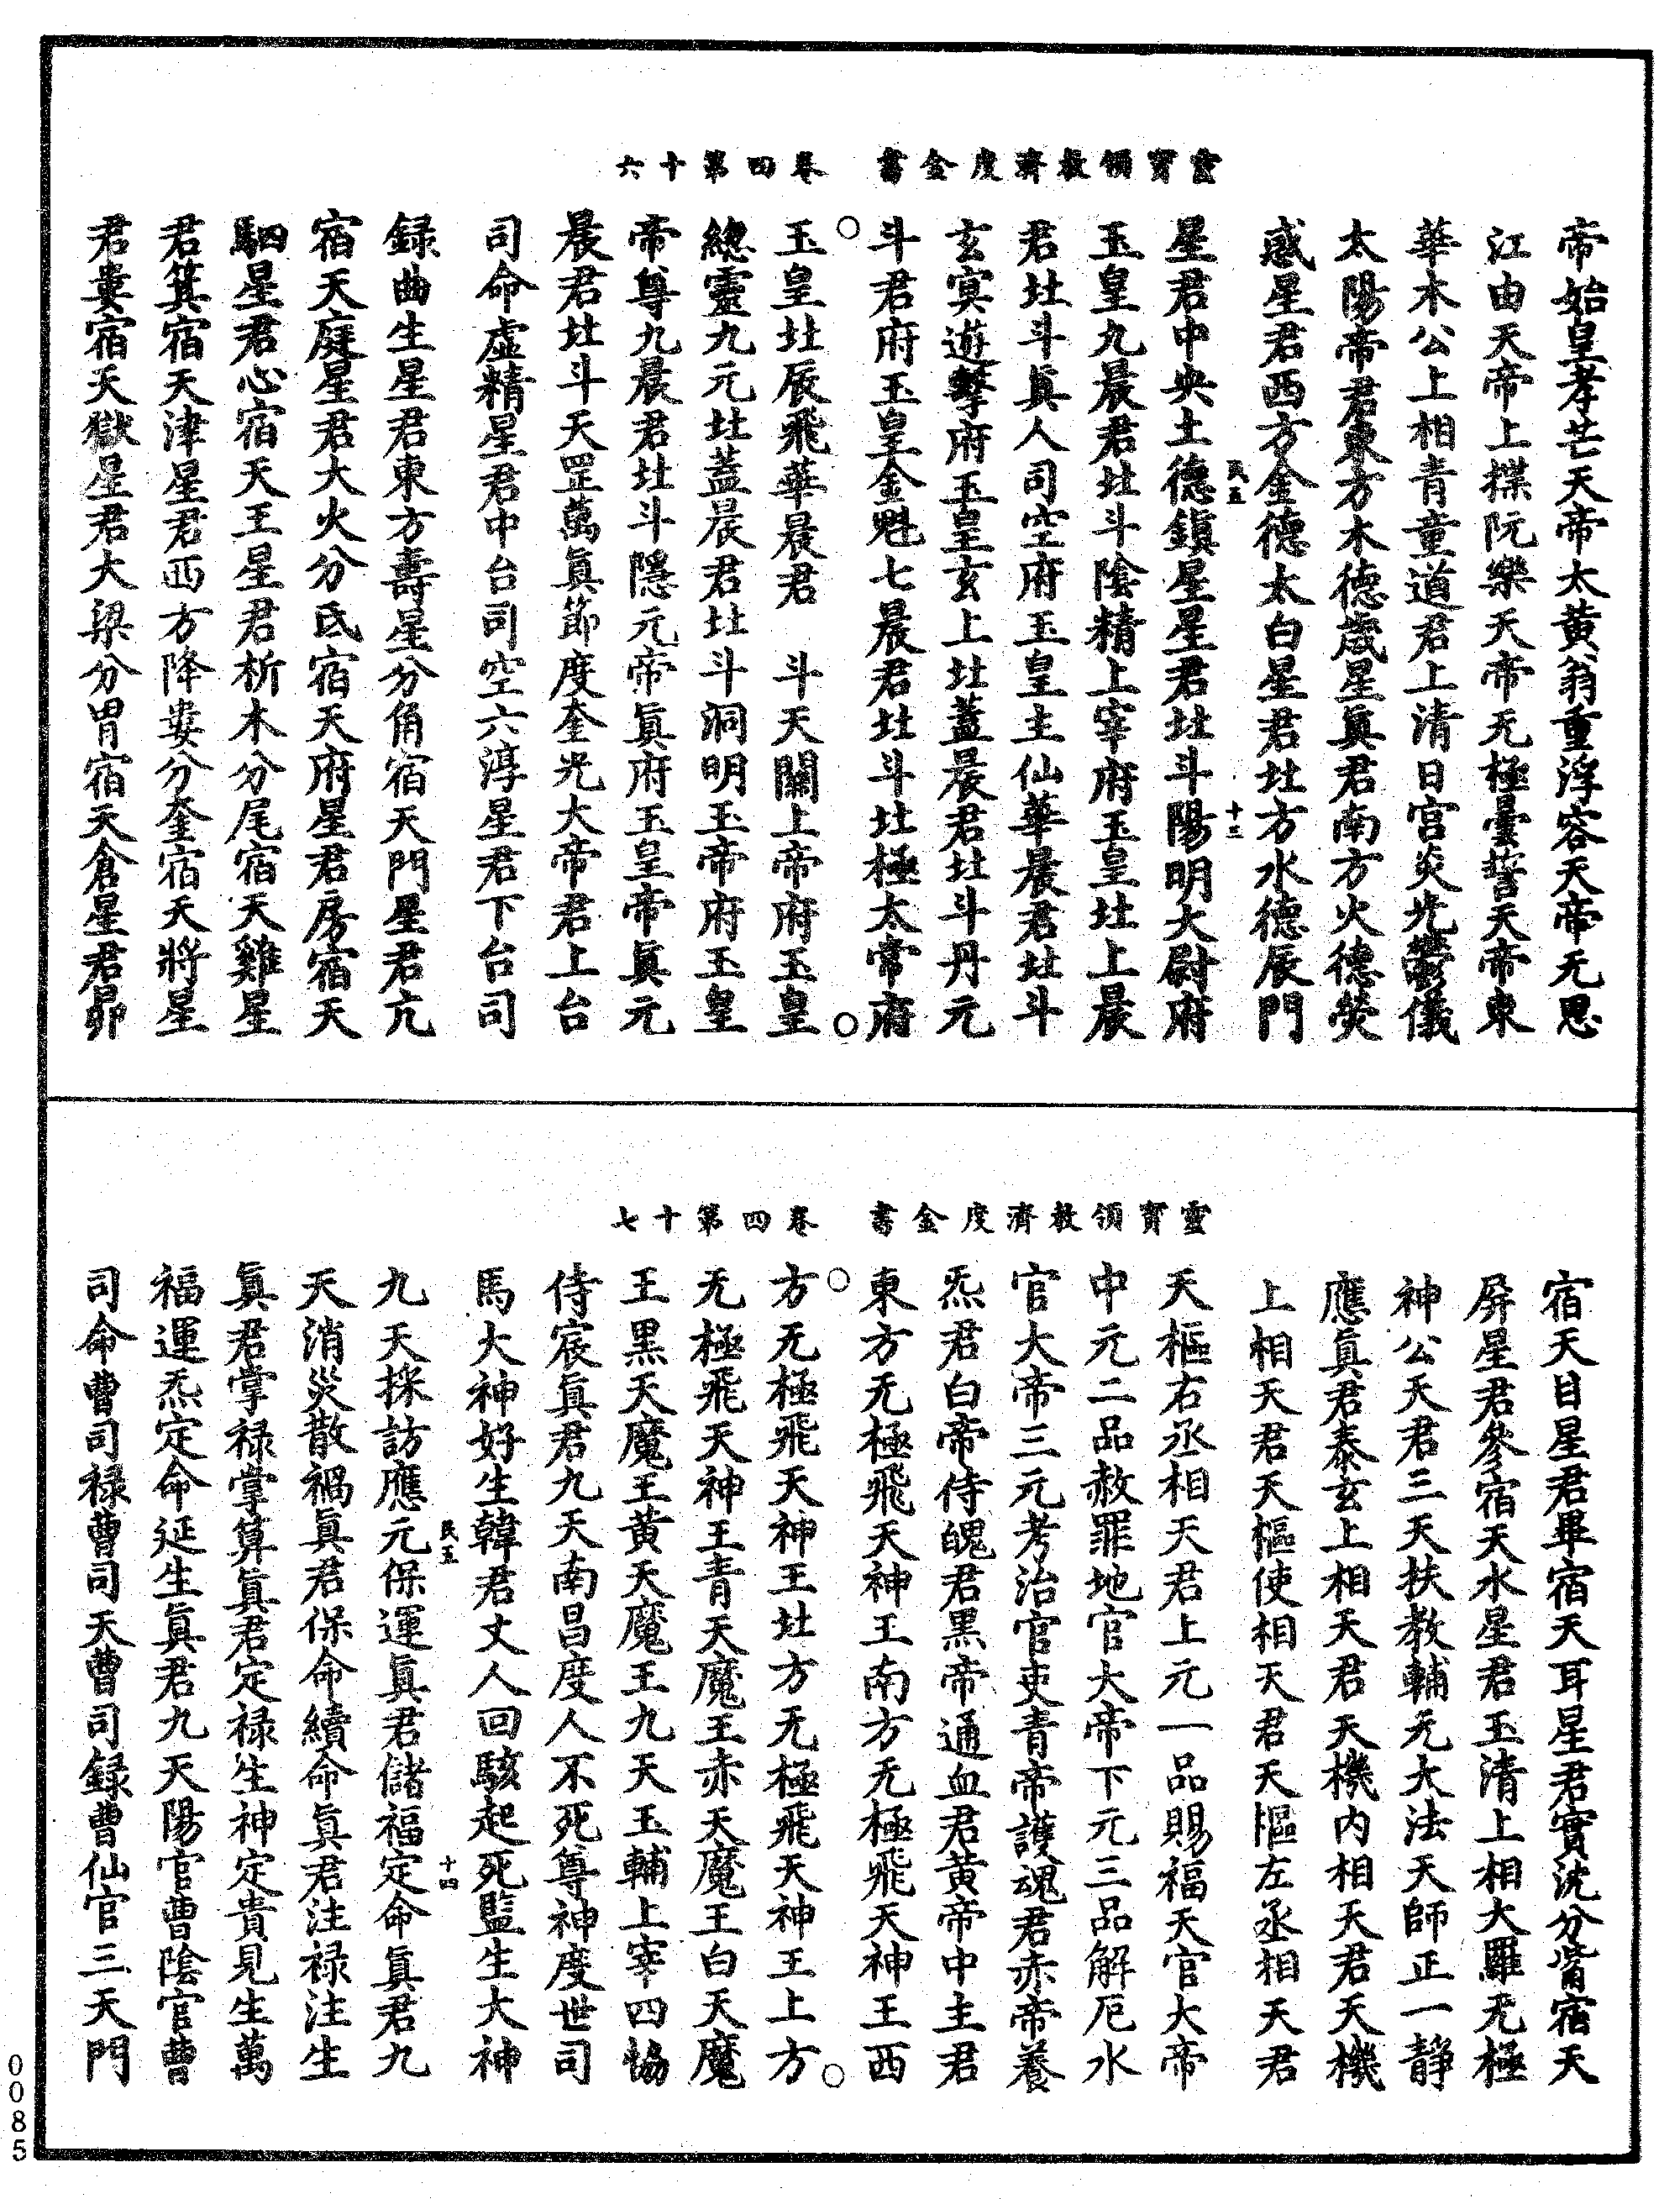 靈寶領教濟度金書　卷四第十六
帝始皇孝芒天帝太黃翁重浮容天帝无思
江由天帝上揲阮樂天帝无極曇誓天帝東
華木公上相青童道君上清日宮炎光鬱儀
太陽帝君東方木德歲星眞君南方火德熒
惑星君西方金德太白星君北方水德辰門
星君中央土德鎭星星君北斗陽明大尉府
玉皇九晨君北斗陰精上宰府玉皇北上晨
君北斗眞人司空府玉皇主仙華晨君北斗
玄冥遊擊府玉皇玄上北蓋晨君北斗丹元
斗君府玉皇金魁七晨君北斗北極太常府
玉皇北辰飛華晨君　斗天關上帝府玉皇
總靈九元北蓋晨君北斗洞明玉帝府玉皇
帝尊九晨君北斗隱元帝眞府玉皇帝眞元
晨君北斗天罡萬眞節度奎光大帝君上台
司命虛精星君中台司空六淳星君下台司
錄曲生星君東方壽星分角宿天門星君亢
宿天庭星君大火分氐宿天府星君房宿天
駟星君心宿天王星君析木分尾宿天雞星
君箕宿天津星君西方降婁分奎宿天將星
君婁宿天獄星君大梁分胃宿天倉星君昴
民五
十三
靈寶領教濟度金書　卷四第十七
宿天目星君畢宿天耳星君實沈分觜宿天
屏星君參宿天水星君玉清上相大羅无極
神公天君三天扶教輔无大法天師正一靜
應眞君泰玄上相天君天機內相天君天機
上相天君天樞使相天君天樞左丞相天君
天樞右丞相天君上元一品賜福天官大帝
中元二品赦罪地官大帝下元三品解厄水
官大帝三元考治官吏青帝護魂君赤帝養
炁君白帝侍魄君黑帝通血君黃帝中主君
東方无極飛天神王南方无極飛天神王西
方无極飛天神王北方无極飛天神王上方
无極飛天神王青天魔王赤天魔王白天魔
王黑天魔王黃天魔王九天玉輔上宰四協
侍宸眞君九天南昌度人不死尊神度世司
馬大神好生韓君丈人回駭起死監生大神
九天採訪應元保運眞君儲福定命眞君九
天消災散禍眞君保命續命眞君注祿注生
眞君掌祿掌算眞君定祿生神定貴見生萬
福運炁定命延生眞君九天陽官曹陰官曹
司命曹司祿曹司天曹司錄曹仙官三天門
民五
十四
0085